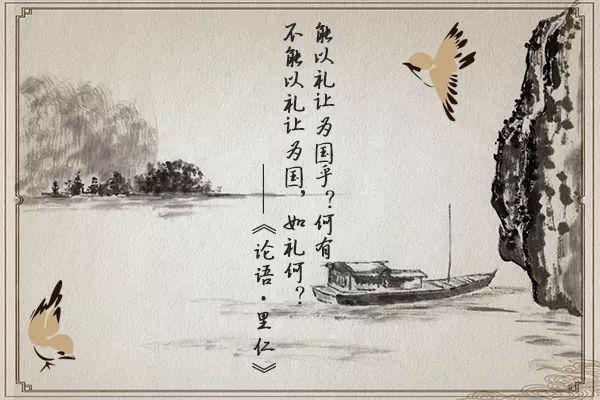 能以礼让为国乎?何有
不能以礼让为国,如礼何?
——《论语·里仁》